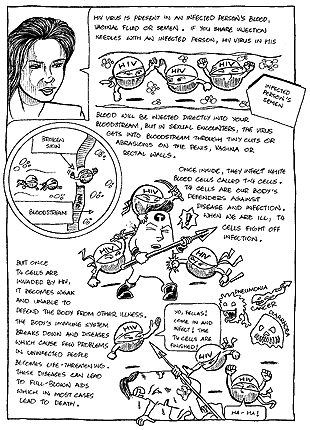 HIV VIRUS IS PRESENT IN AN INFECTED PERSON'S BLOOD,
VAGINAL FLUID OR SEMEN. IF YOU SHARE INJECTION
NEEDLES WITH AN INFECTED PERSON, HIV VIRUS IN HIS
HIV
HIV
HIV
INFECTED
PERSON'S
SEMEN
BLOOD WILL BE INJECTED DIRECTLY INTO YOUR
BLOODSTREAM, BUT IN SEXUAL ENCOUNTERS, THE VIRUS
GETS INTO BLOODSTREAM THROUGH TINY CUTS OR
ABRASIONS ON THE PENIS, VAGINA OR
RECTAL WALLS.
BROKEN
SKIN
BLOODSTREAM
ONCE INSIDE, THEY INFECT WHITE
BLOOD CELLS CALLED T4 CELLS.
T4 CELLS ARE OUR BODY'S
DEFENDERS AGAINST
DISEASE AND INFECTION.
WHEN WE ARE ILL, T4
CELLS FIGHT OFF
INFECTION.
HIV
HIV
HIV
BUT ONCE
T4 CELLS ARE
INVADED BY HIV,
IT BECOMES WEAK
AND UNABLE TO
DEFEND THE BODY FROM OTHER ILLNESS.
THE BODY'S IMMUNE SYSTEM
BREAKS DOWN AND DISEASES
WHICH CAUSE FEW PROBLEMS
IN UNINFECTED PEOPLE
BECOME LIFE-THREATENING.
THESE DISEASES CAN LEAD
TO FULL-BLOWN AIDS
WHICH IN MOST CASES
LEAD TO DEATH.
PNEUMONIA
CANCER
YO, FELLAS!
COME IN AND
INFECT! THE
T4 CELLS ARE
FINISHED!
HIV
HIV
HIV
HA-HA!